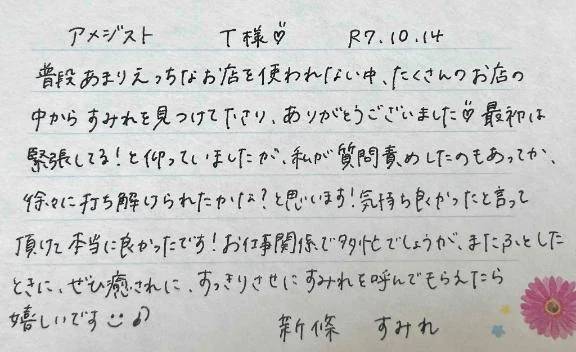 アメジスト T様♡ R7.10.14
普段あまりえっちなお店を使われない中、たくさんのお店の
中からすみれを見つけて下さり、ありがとうございました♡最初は
緊張してる!と仰っていましたが、私が質問責めしたのもあってか、
徐々に打ち解けられたかな?と思います!気持ち良かったと言って
頂けて本当に良かったです!お仕事関係で多忙でしょうが、またふとした
ときに、ぜひ癒されに、すっきりさせにすみれを呼んでもらえたら
嬉しいです☺♪ 新條 すみれ